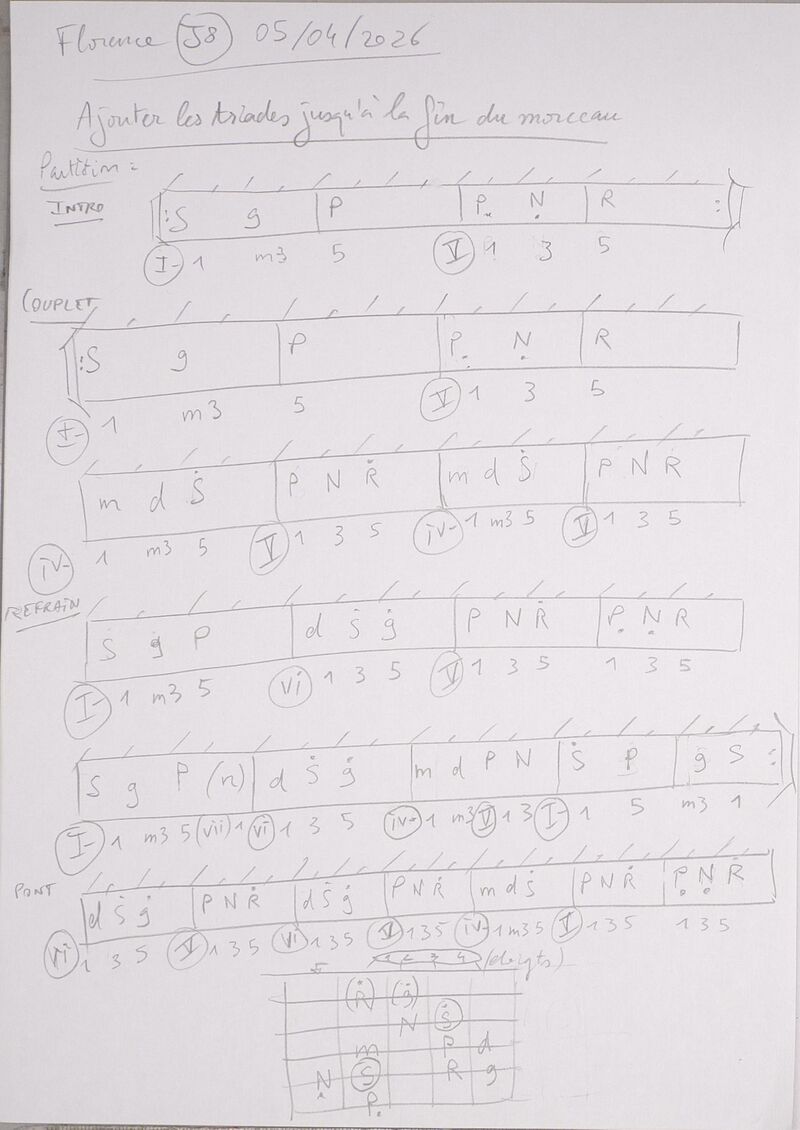 Florence J8 05/04/2026
Ajouter les triades jusqu'à la fin du morceau
Partition :
INTRO
S g P P N R
I- 1 m3 5 V 1 3 5
COUPLET
S g P P N R
I- 1 m3 5 V 1 3 5
m d S P N R m d S P N R
iv- 1 m3 5 V 1 3 5 iv- 1 m3 5 V 1 3 5
REFRAIN
S g P d S g P N R P N R
I- 1 m3 5 vi 1 3 5 V 1 3 5 1 3 5
S g P (n) d S g m d P N S P g S
I- 1 m3 5 (vii) 1 vi 1 3 5 iv- 1 m3 V 1 3 I- 1 5 m3 1
PONT
d S g P N R d S g P N R m d S P N R P N R
vi 1 3 5 V 1 3 5 vi 1 3 5 V 1 3 5 iv- 1 m3 5 V 1 3 5 1 3 5
(doigts)
(R) (g)
N S
m P d
N S R g
P